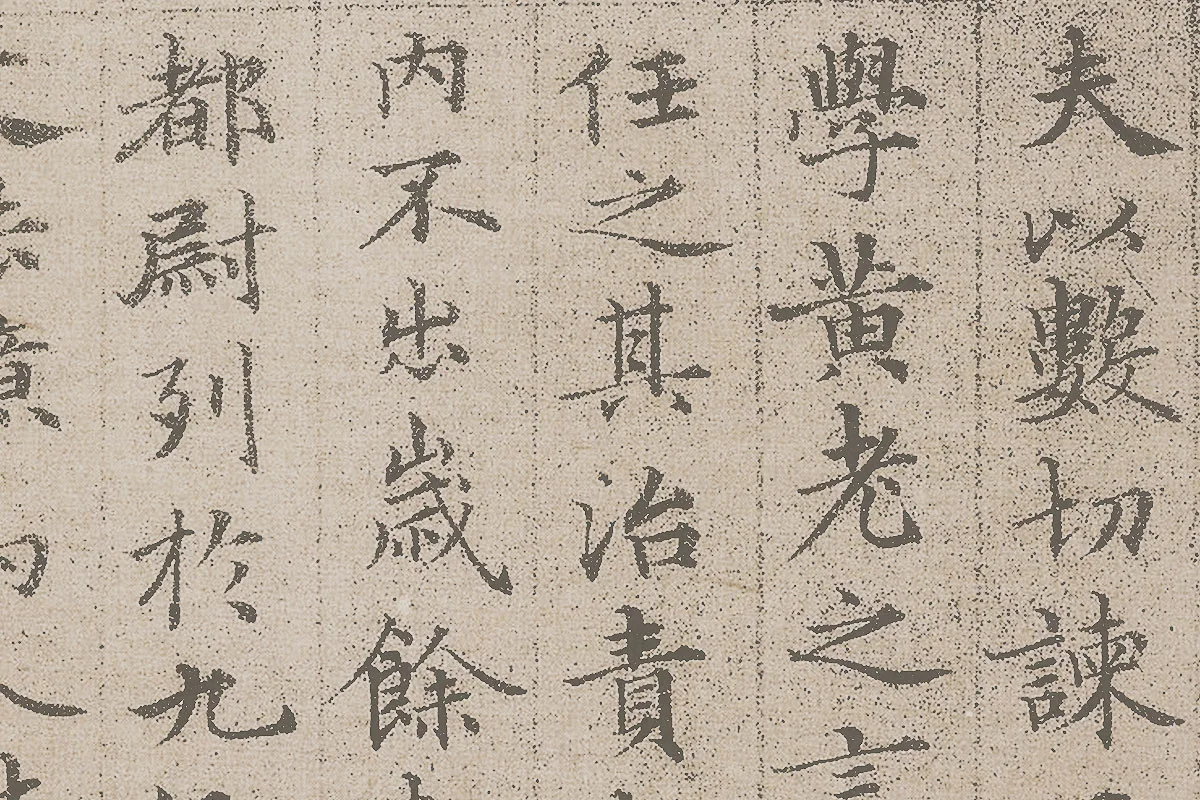 夫以數切諫
學黃老之言
任之其治責
內不出歳餘
都尉列於九